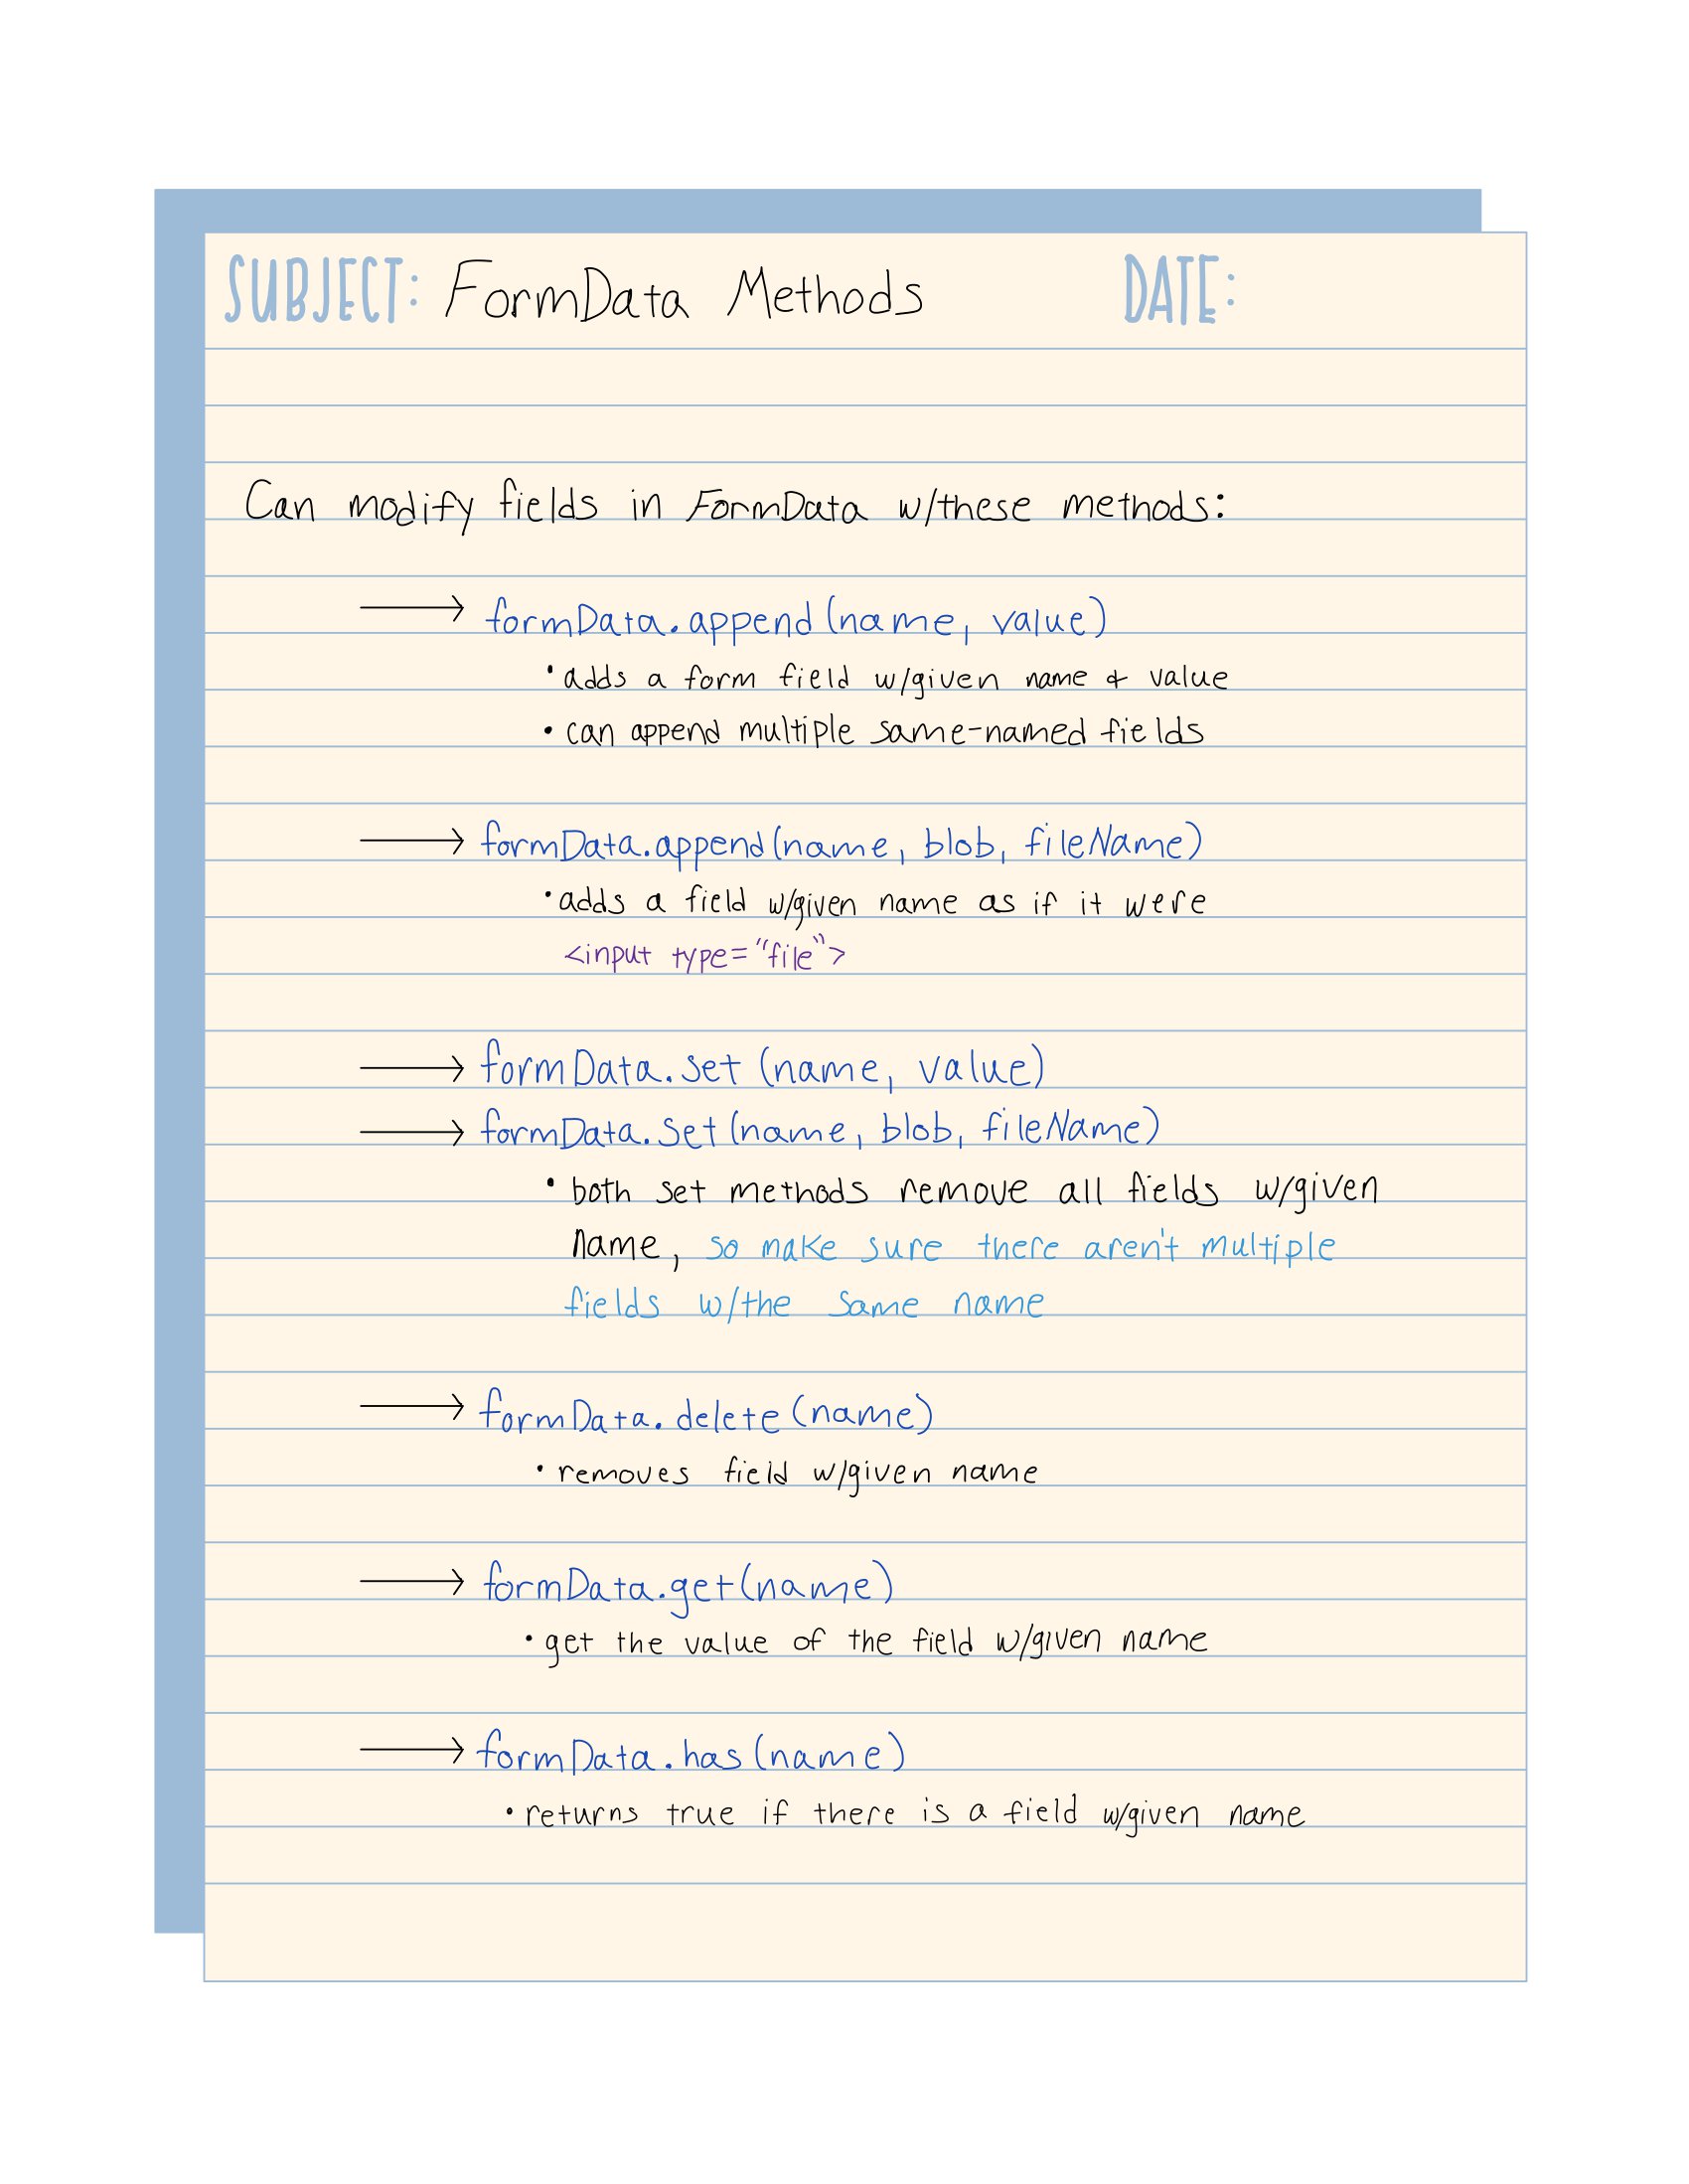 SUBJECT: FormData Methods DATE:
Can modify fields in FormData w/these methods:
→ formData.append(name, value)
• adds a form field w/given name & value
• can append multiple same-named fields
→ formData.append(name, blob, fileName)
• adds a field w/given name as if it were
<input type="file">
→ formData.set(name, value)
→ formData.set(name, blob, fileName)
• both set methods remove all fields w/given
name, so make sure there aren't multiple
fields w/the same name
→ formData.delete(name)
• removes field w/given name
→ formData.get(name)
• get the value of the field w/given name
→ formData.has(name)
• returns true if there is a field w/given name